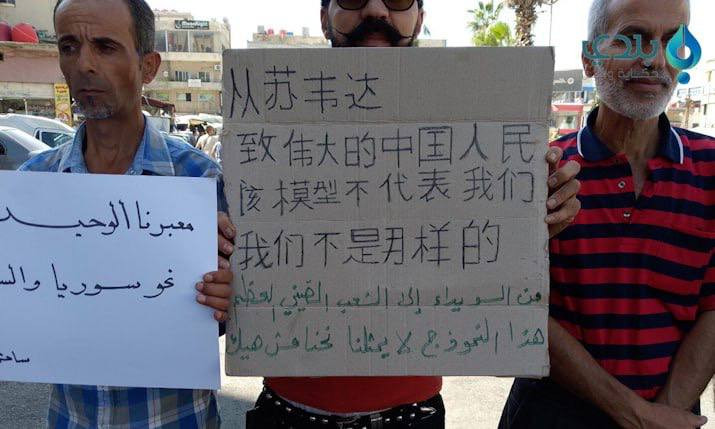 从苏韦达
致伟大的中国人民
该模型不代表我们
我们不是那样的
من السويداء إلى الشعب الصيني العظيم
هذا النموذج لا يمثلنا نحنا مش هيك
معبرنا الوحيد
نحو سوريا والس
ساحة
بلدي